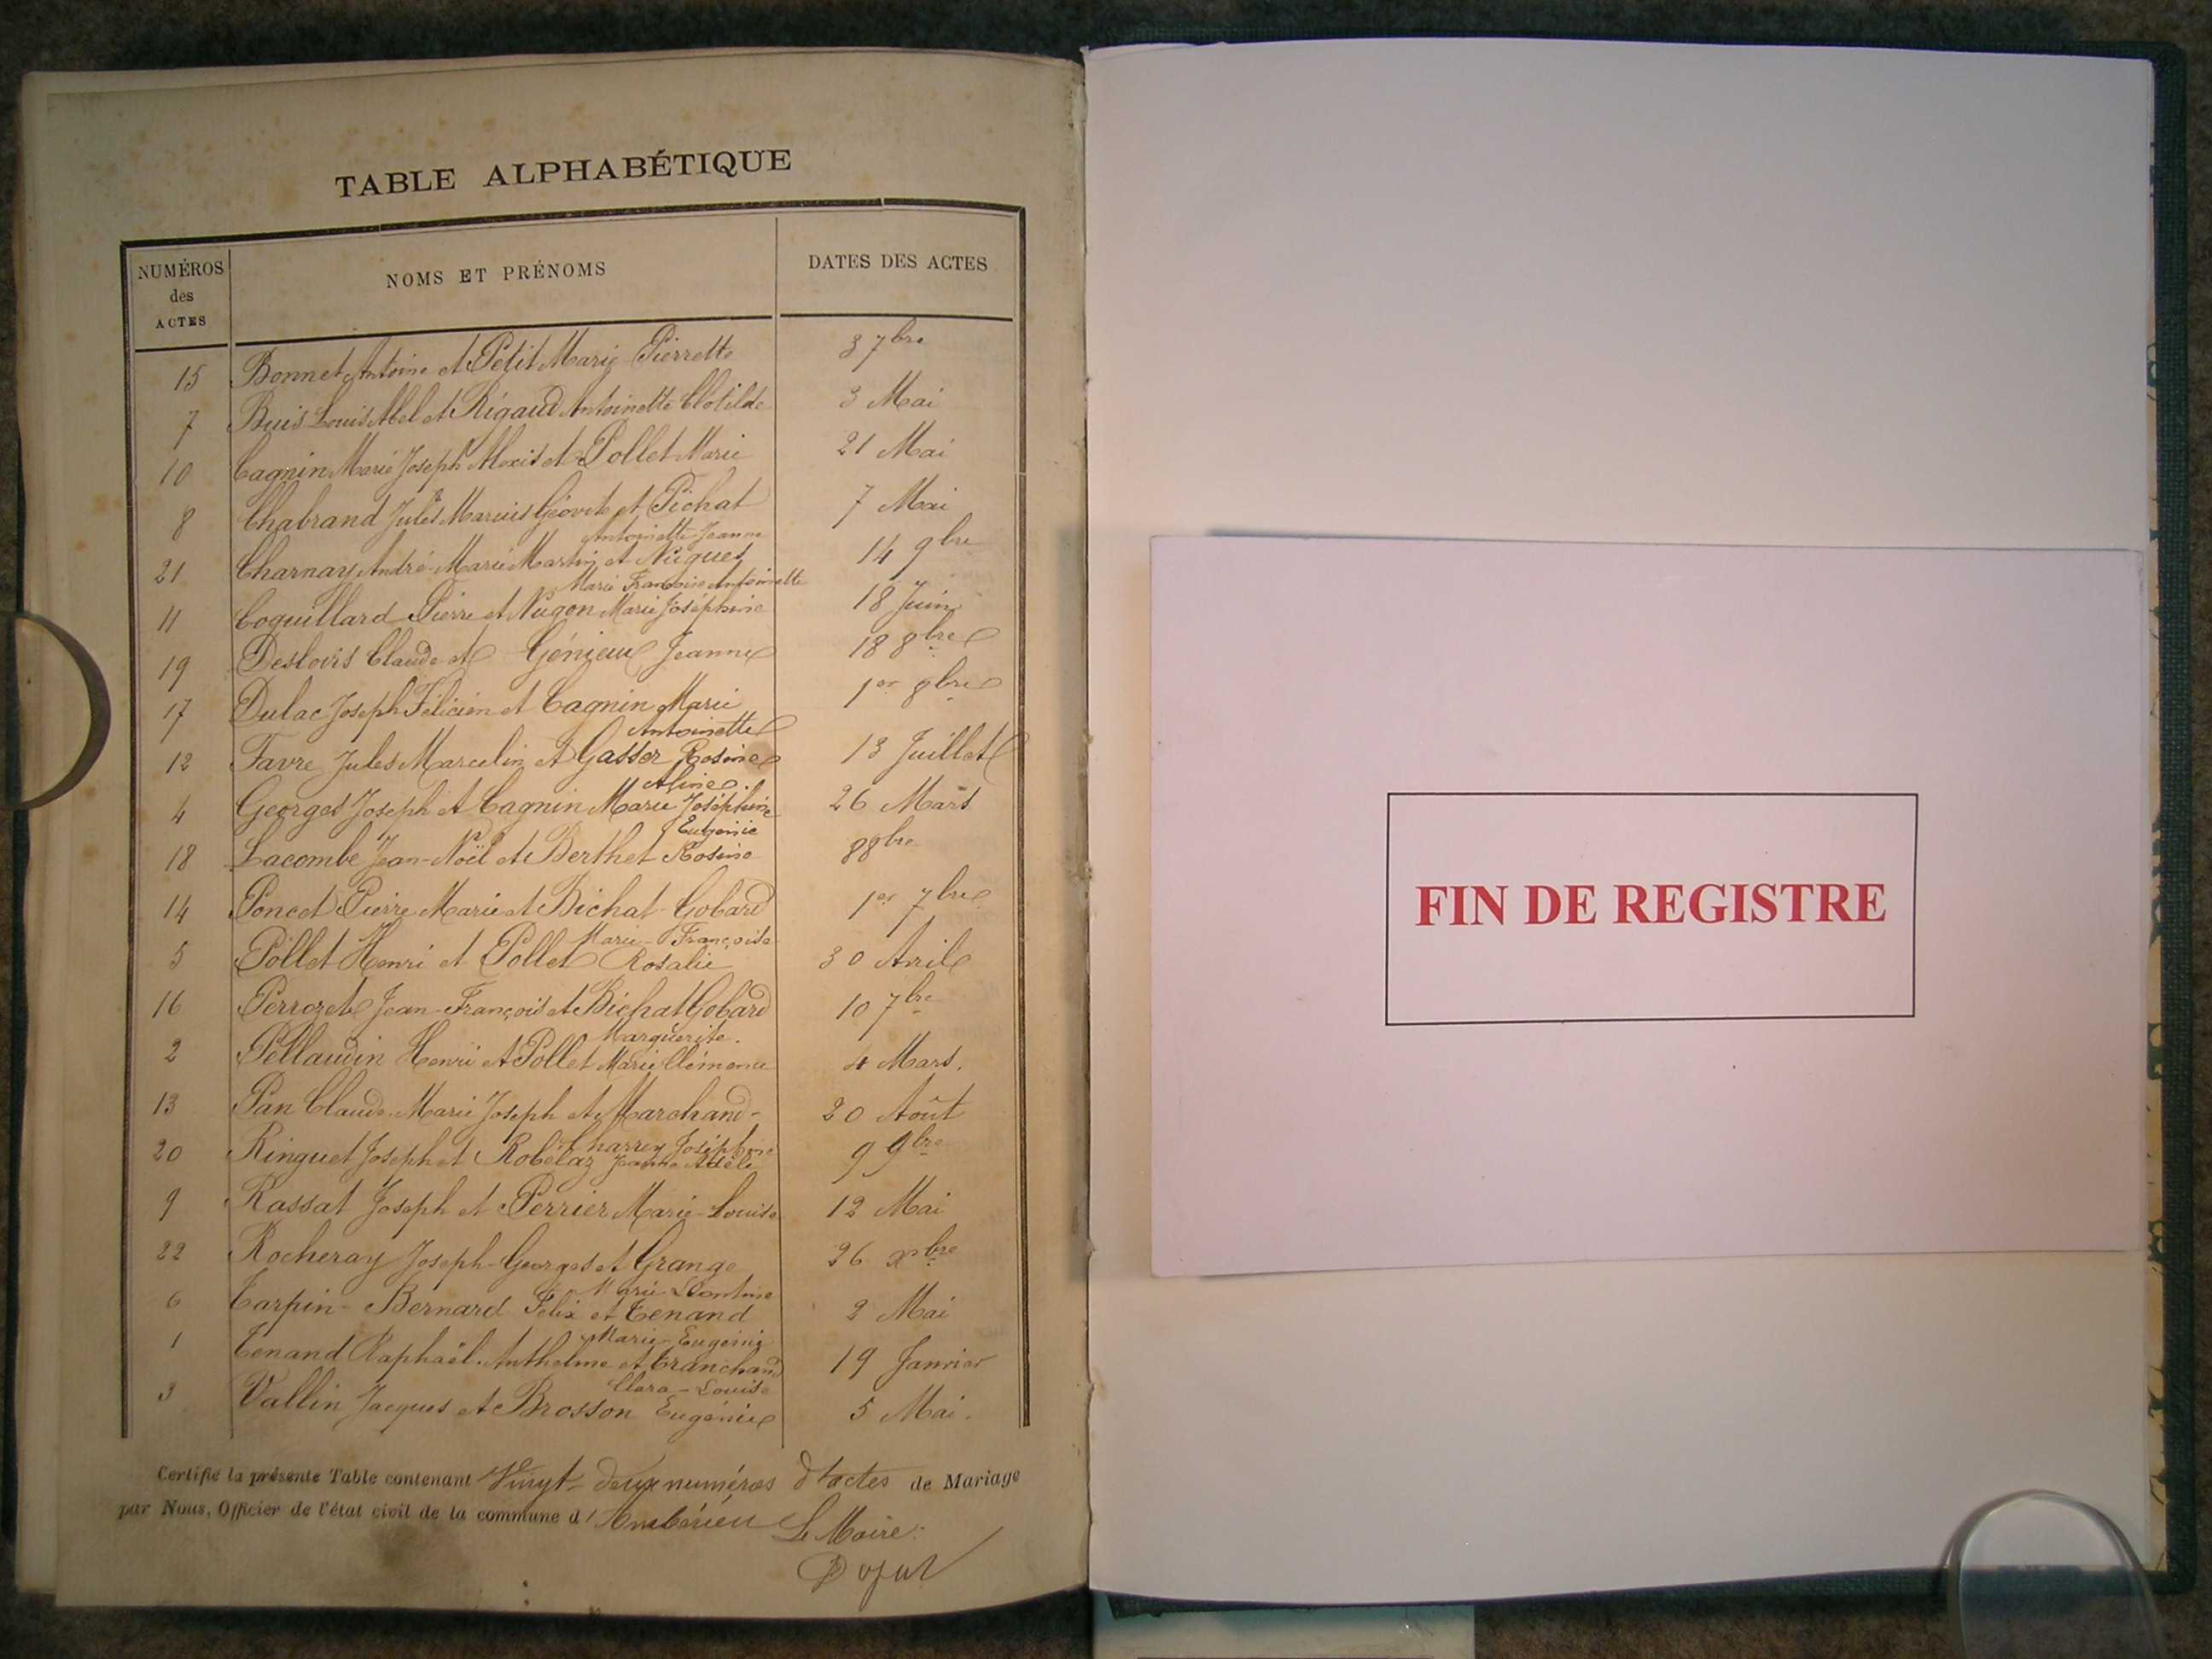 TABLE ALPHABÉTIQUE
NUMÉROS des ACTES
NOMS ET PRÉNOMS
DATES DES ACTES
15 Bonnet Antoine et Petit Marie Pierrette 3 7bre
7 Buis Louis Abel et Rigaud Antoinette Clotilde 3 Mai
10 Cagnin Marie Joseph Alexis et Pollet Marie 21 Mai
8 Chabrand Jules Marius Géovite et Pichat 7 Mai
Antoinette Jeanne
21 Charnay André-Marie Martin et Nugues 14 9bre
Marie Françoise Antoinette
11 Coquillard Pierre et Nugon Marie Joséphine 18 Juin
19 Desloirs Claude et Génieux Jeanne 18 8bre
17 Dulac Joseph Félicien et Cagnin Marie 1er 8bre
Antoinette
12 Favre Jules Marcelin et Gasser Rosine 13 Juillet
Aline
4 Georges Joseph et Cagnin Marie Joséphine 26 Mars
Eugénie
18 Lacombe Jean-Noël et Berthet Rosine 8 8bre
14 Poncet Pierre Marie et Bichat-Gobard 1er 7bre
Marie-Françoise
5 Pollet Henri et Pollet Rosalie 30 Avril
16 Perrozet Jean-François et Bichat Gobard 10 7bre
Marguerite.
2 Pellaudin Henri et Pollet Marie Clémence 4 Mars.
13 Pan Claude-Marie Joseph et Marchand- 20 Août
Charrey Joséphine
20 Ringuet Joseph et Robelaz Jeanne Adèle 9 9bre
9 Rassat Joseph et Perrier Marie-Louise 12 Mai
22 Rocheray Joseph-Georges et Grange 26 xbre
Marie Léontine
6 Tarpin-Bernard Felix et Tenand 2 Mai
Marie-Eugénie
1 Tenand Raphaël-Anthelme et Tranchand 19 Janvier
Clara-Louise
3 Vallin Jacques et Brosson Eugénie 5 Mai.
Certifié la présente Table contenant Vingt-deux numéros d'actes de Mariage
par Nous, Officier de l'état civil de la commune d'Ambérieu Le Maire:
FIN DE REGISTRE